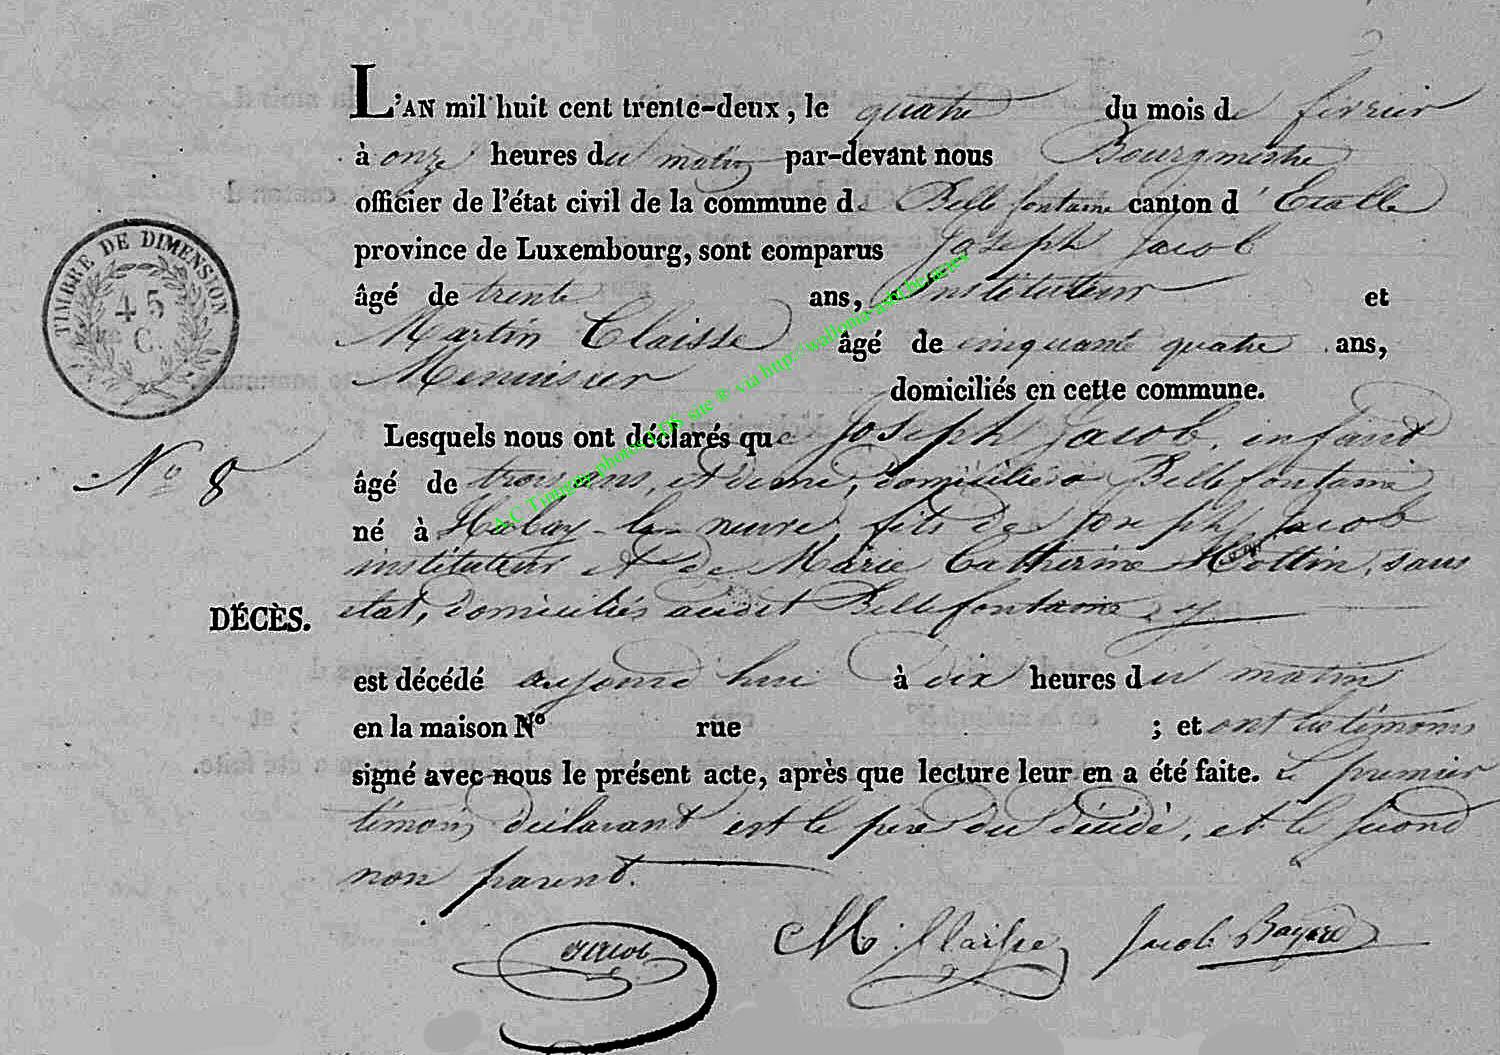 L'AN mil huit cent trente-deux, le quatre du mois de février
à onze heures du matin par-devant nous Bourgmestre
officier de l'état civil de la commune de Bellefontaine canton d'Etalle
province de Luxembourg, sont comparus Joseph Jacob
âgé de trente ans, Instituteur et
Martin Claisse âgé de cinquante quatre ans,
Menuisier domiciliés en cette commune.
Lesquels nous ont déclarés que Joseph Jacob, enfant
âgé de trois ans, et demi, domicilié à Bellefontaine
né à Habay-la-neuve, fils de Joseph Jacob
instituteur et de Marie Catherine Hottin, sans
état, domiciliés audit Bellefontaine
est décédé aujourd'hui à dix heures du matin
en la maison N° rue ; et ont les témoins
signé avec nous le présent acte, après que lecture leur en a été faite. Le premier
témoin déclarant est le père du décédé, et le second
non parent.
DÉCÈS.
N° 8
TIMBRE DE DIMENSION
45
C
A.C Tintigny photos LDS site ® via http://wallonia-asbl.be/actes
Jacob M Claisse Jacob Bayard